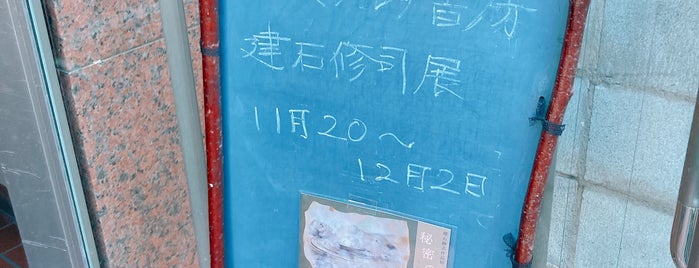 建石修司展
11月20〜
12月2日
秘密